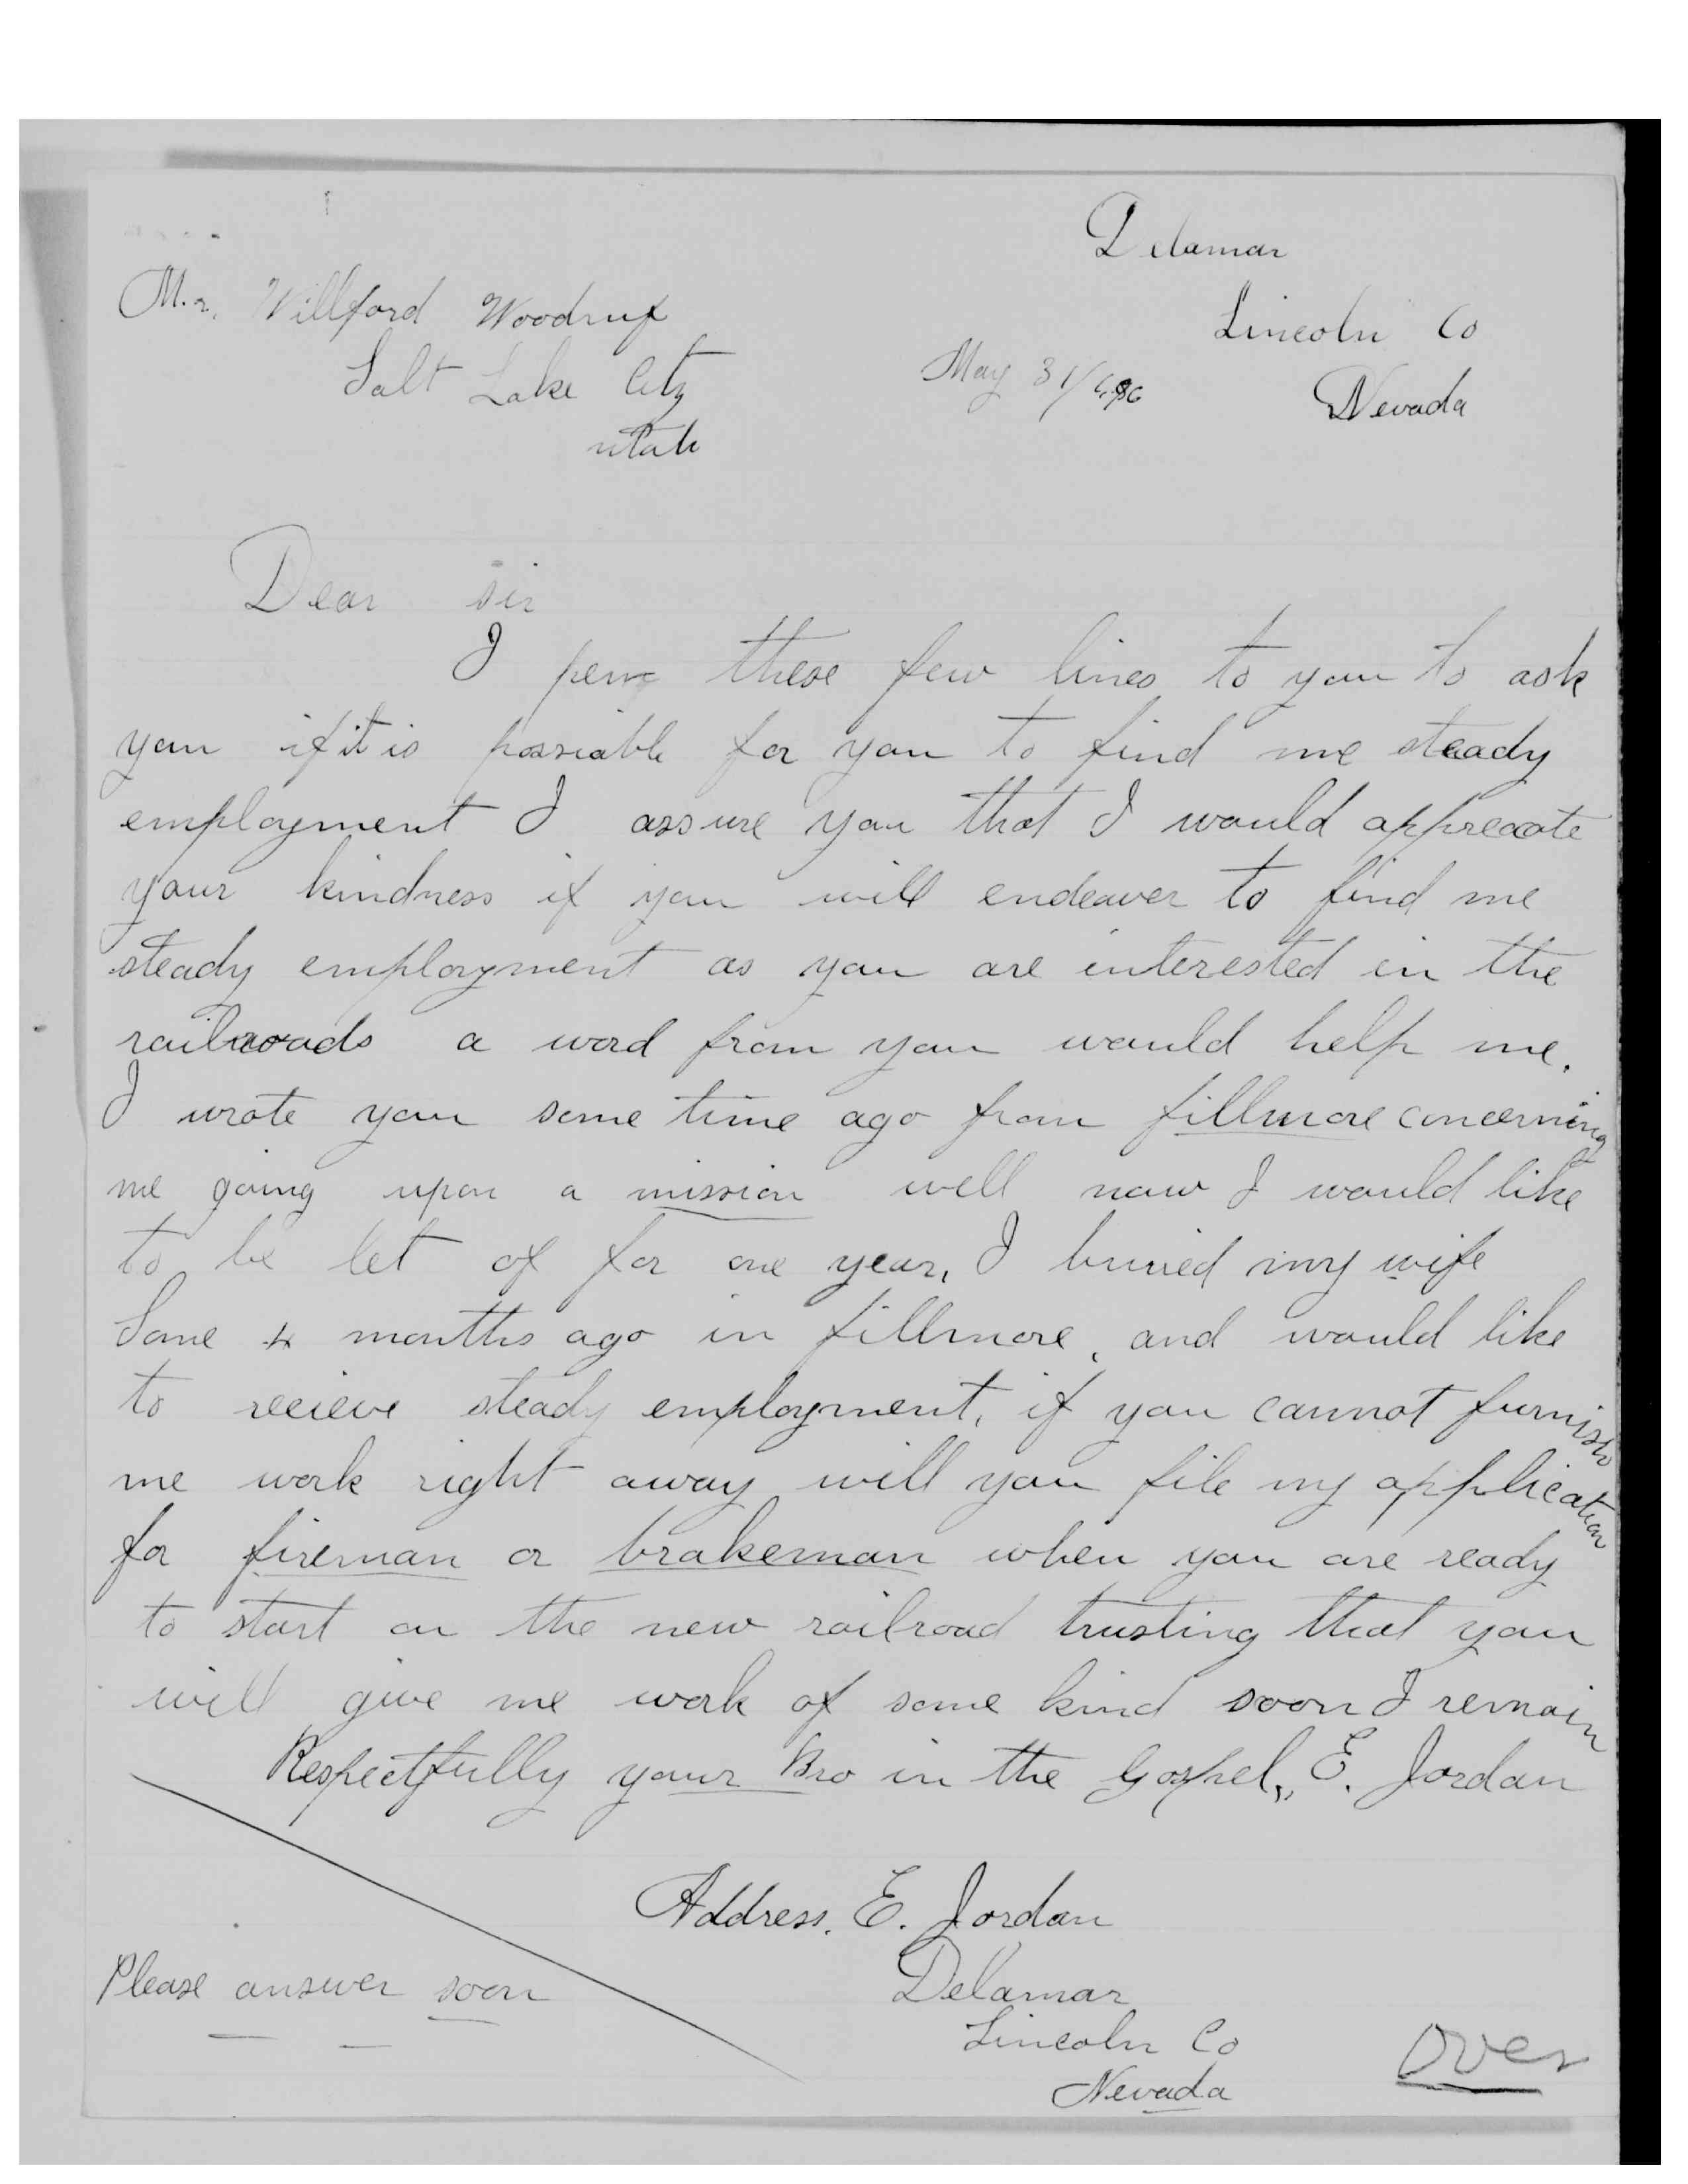 Delamar
Lincoln Co
Nevada
May 31/96
M.r. Willford Woodruf
Salt Lake City
utah
Dear sir
I pen these few lines to you to ask
you if it is possiable for you to find me steady
employment I assure you that I would appreacate
your kindness if you will endeaver to find me
steady employment as you are interested in the
railroads a word from you would help me.
I wrote you some time ago from fillmore concerning
me going upon a mission well now I would like
to be let of for one year, I buried my wife
Some 4 months ago in fillmore, and would like
to recieve steady employment, if you cannot furnish
me work right away will you file my application
for fireman or brakeman when you are ready
to start on the new railroad trusting that you
will give me work of some kind soon I remain
Respectfully your Bro in the Gospel,, E. Jordan
Address. E. Jordan
Delamar
Lincoln Co
Nevada
Please answer soon
Over